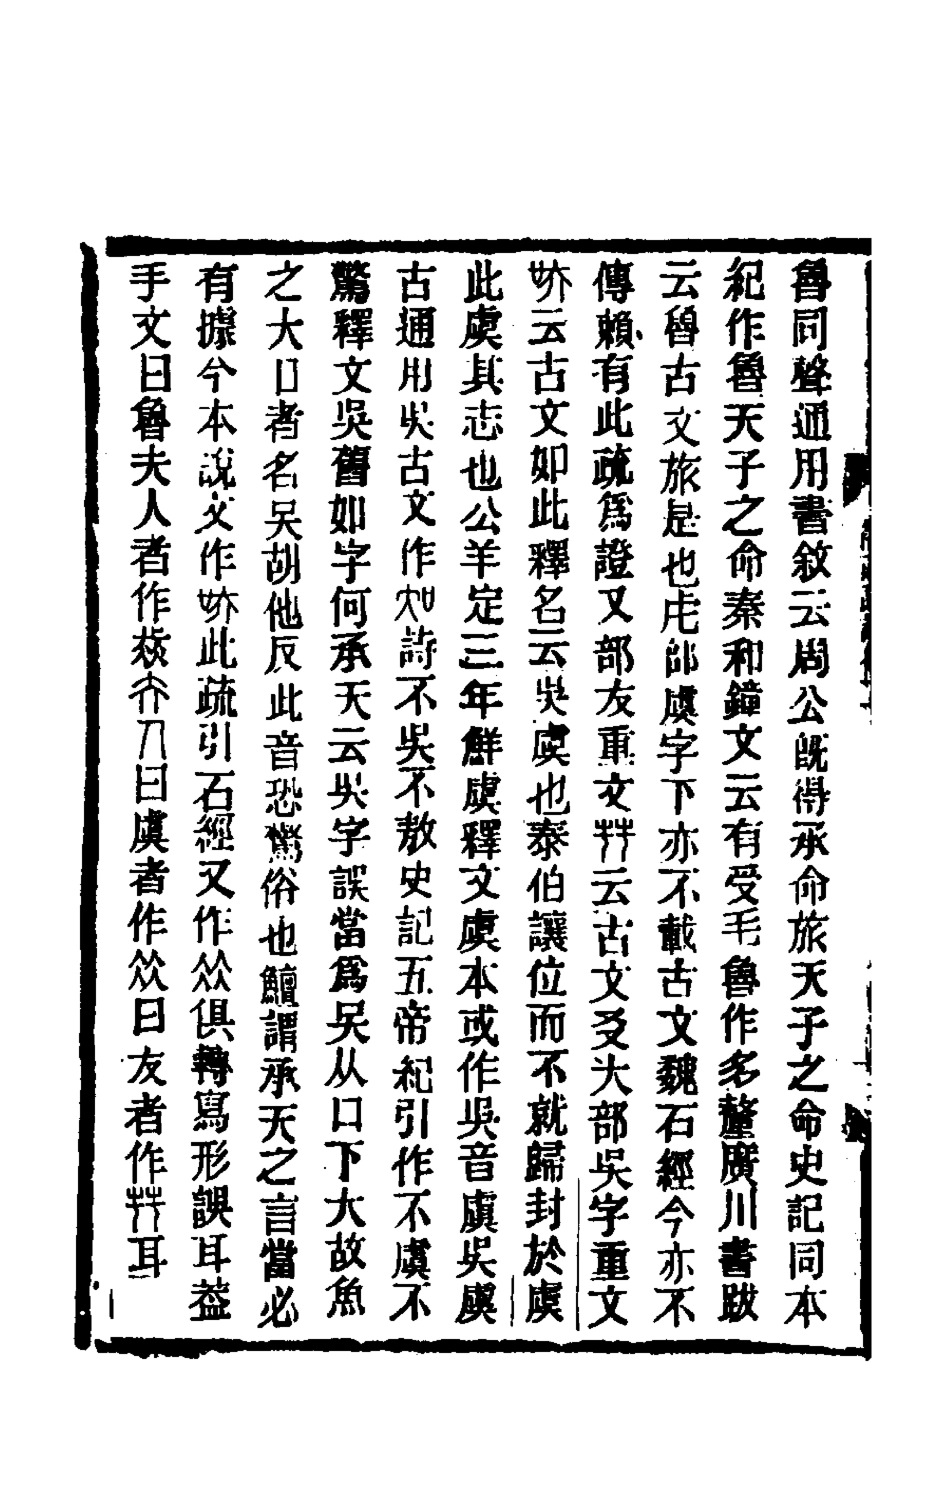 魯同聲通用書敘云周公旣得承命旅天子之命史記同本
紀作魯天子之命秦和鐘文云有受毛魯作多釐廣川書跋
云魯古文旅是也虍部虞字下亦不載古文魏石經今亦不
傳賴有此疏爲證又部友重文艸云古文爻大部吳字重文
云古文如此釋名云吳虞也泰伯讓位而不就歸封於虞
此虞其志也公羊定三年鮮虞釋文虞本或作吳音虞吳虞
古通用吳古文作詩不吳不敖史記五帝紀引作不虞不
驁釋文吳舊如字何承天云吳字誤當爲吴从口下大故魚
之大口者名吴胡他反此音恐驚俗也鱣謂承天之言當必
有據今本說文作此疏引石經又作㒳俱轉寫形誤耳葢
手文曰魯夫人者作曰虞者作㒳曰友者作艸耳